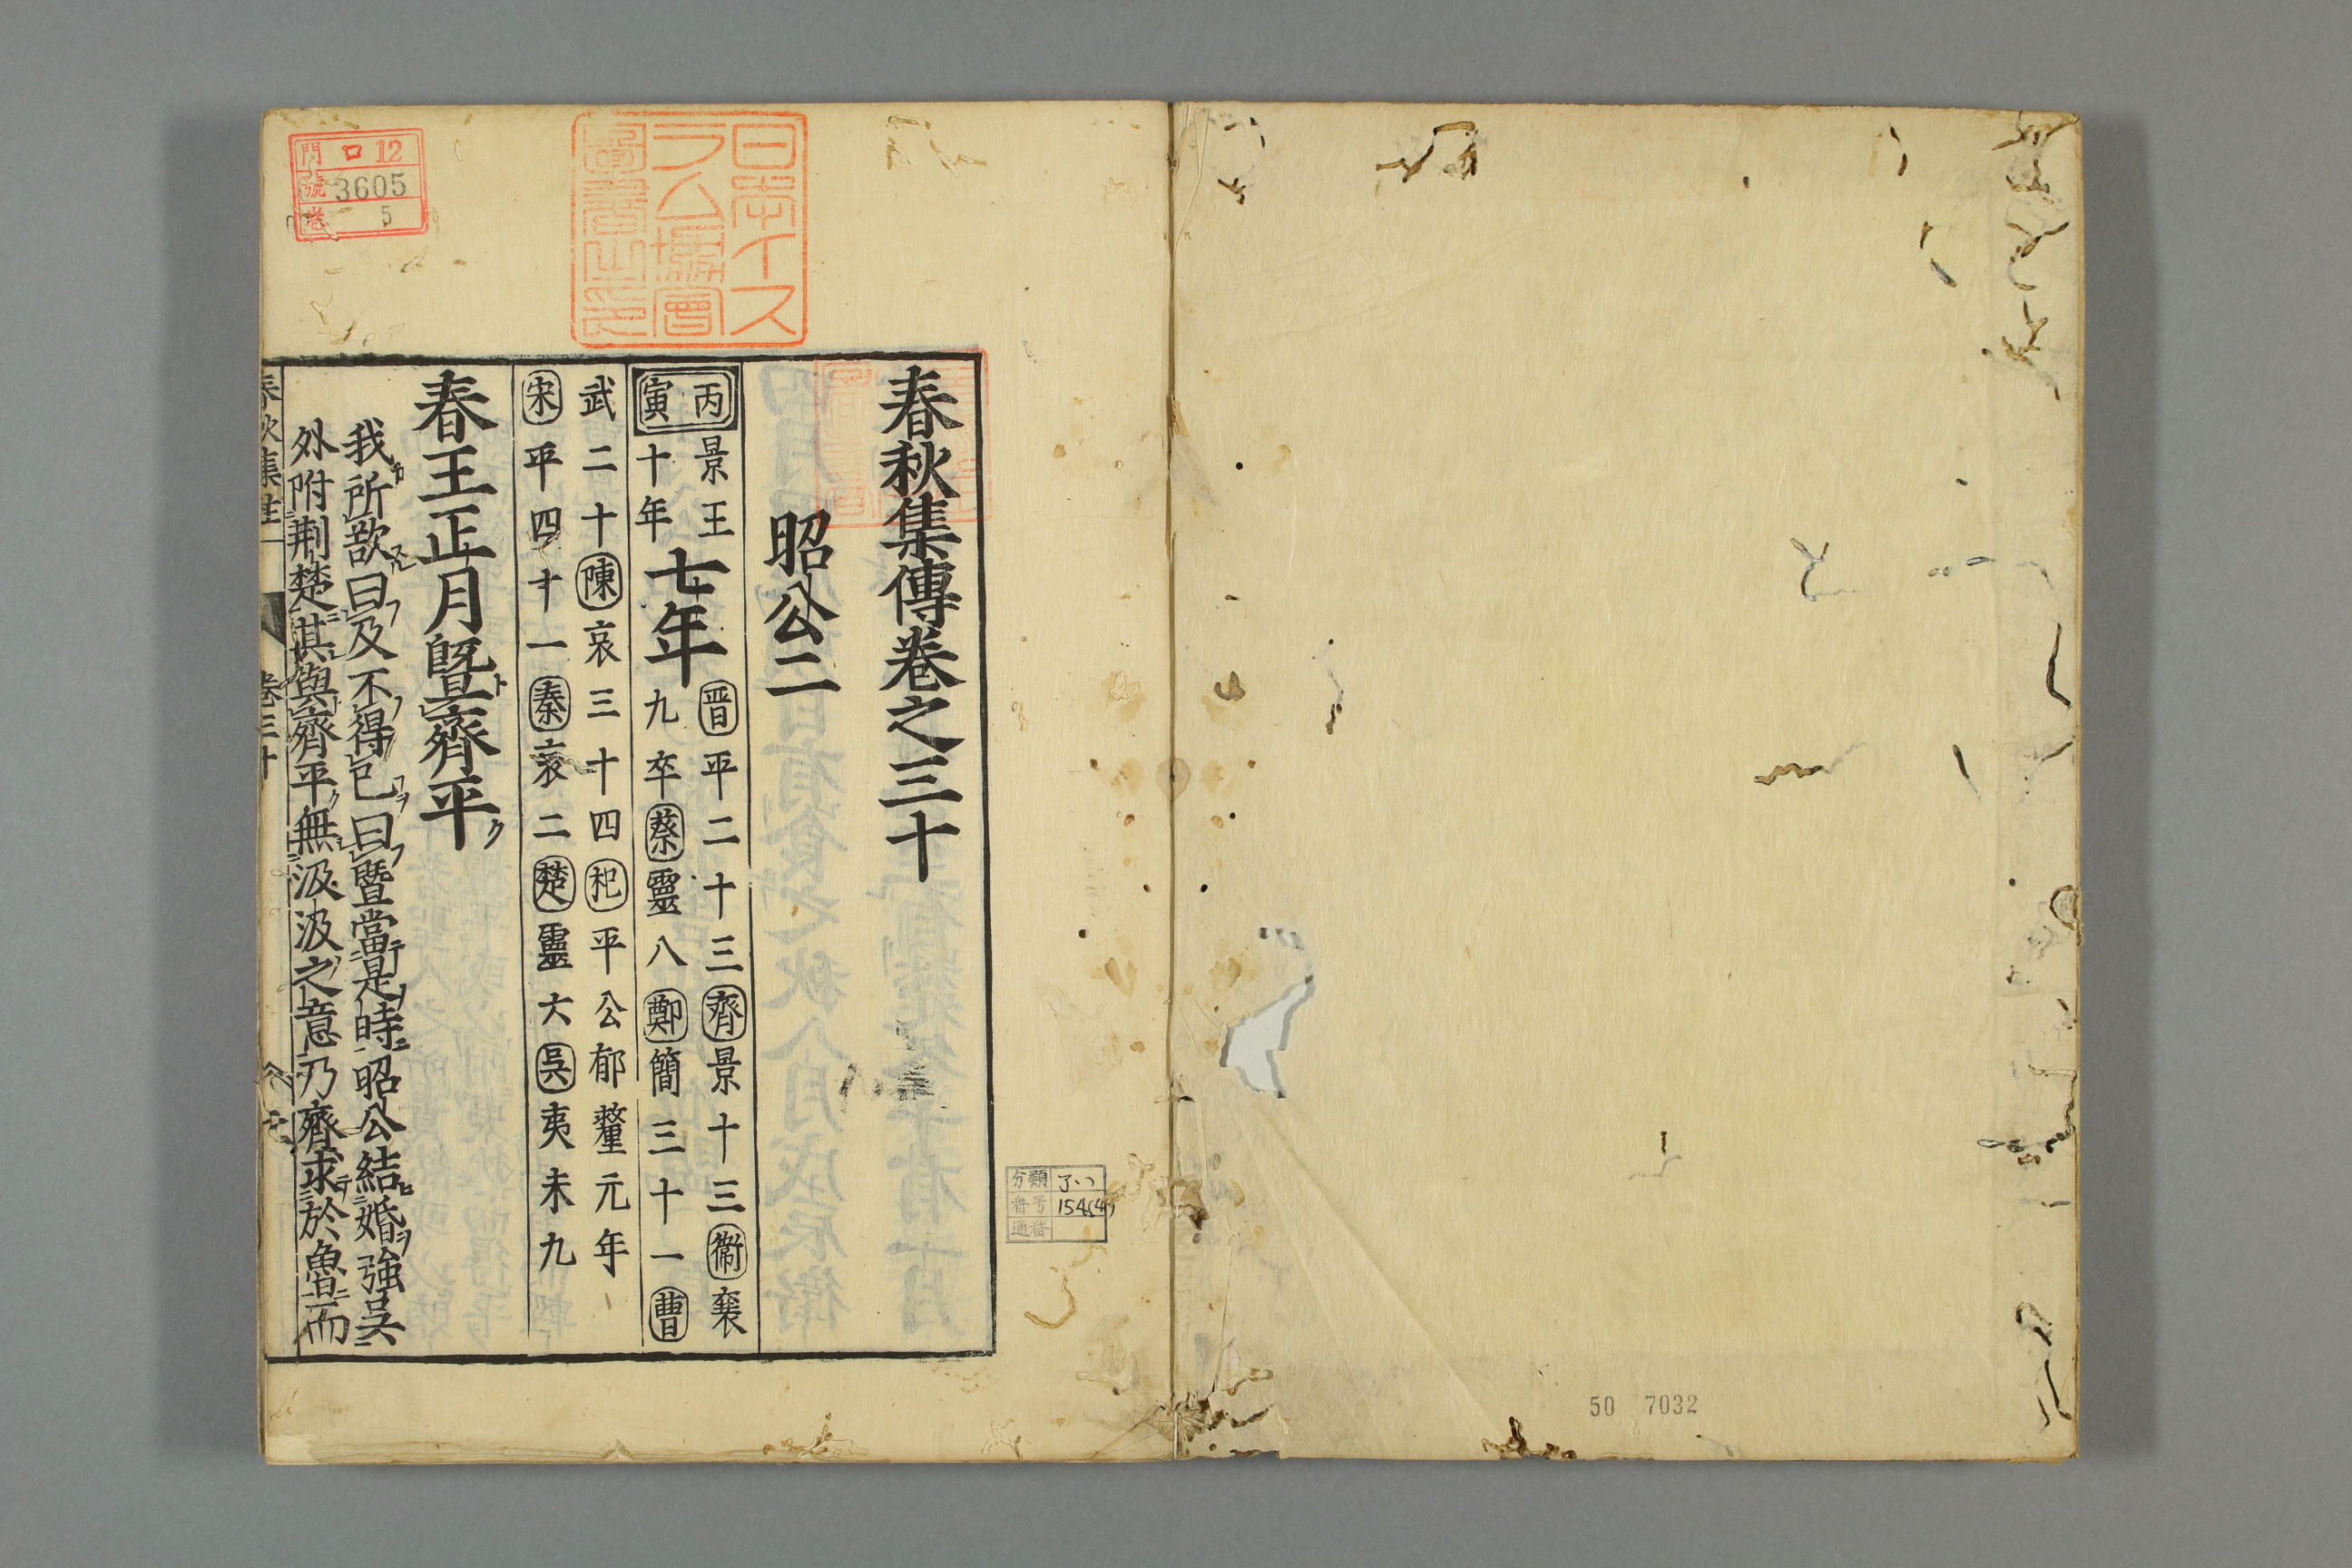 春秋集傳巻之三十
昭公二
丙寅
景王十年
七年
晋平二十三齊景十三衞襄
九卒蔡靈八鄭簡三十一曹
武二十陳哀三十四杞平公郁釐元年
宋平四十一秦哀二楚靈六吳夷末九
春王正月曁齊平ク
我所欲曰及不得已曰曁當是時昭公結婚強吳
外附荆楚其與齊平無汲汲之意乃齊求於魯而
春秋集註
卷三十
日本イス
ラム協會
圖書之印
門 口12
號 3605
卷 5
分類 了い
番号 154(4)
通番
50 7032